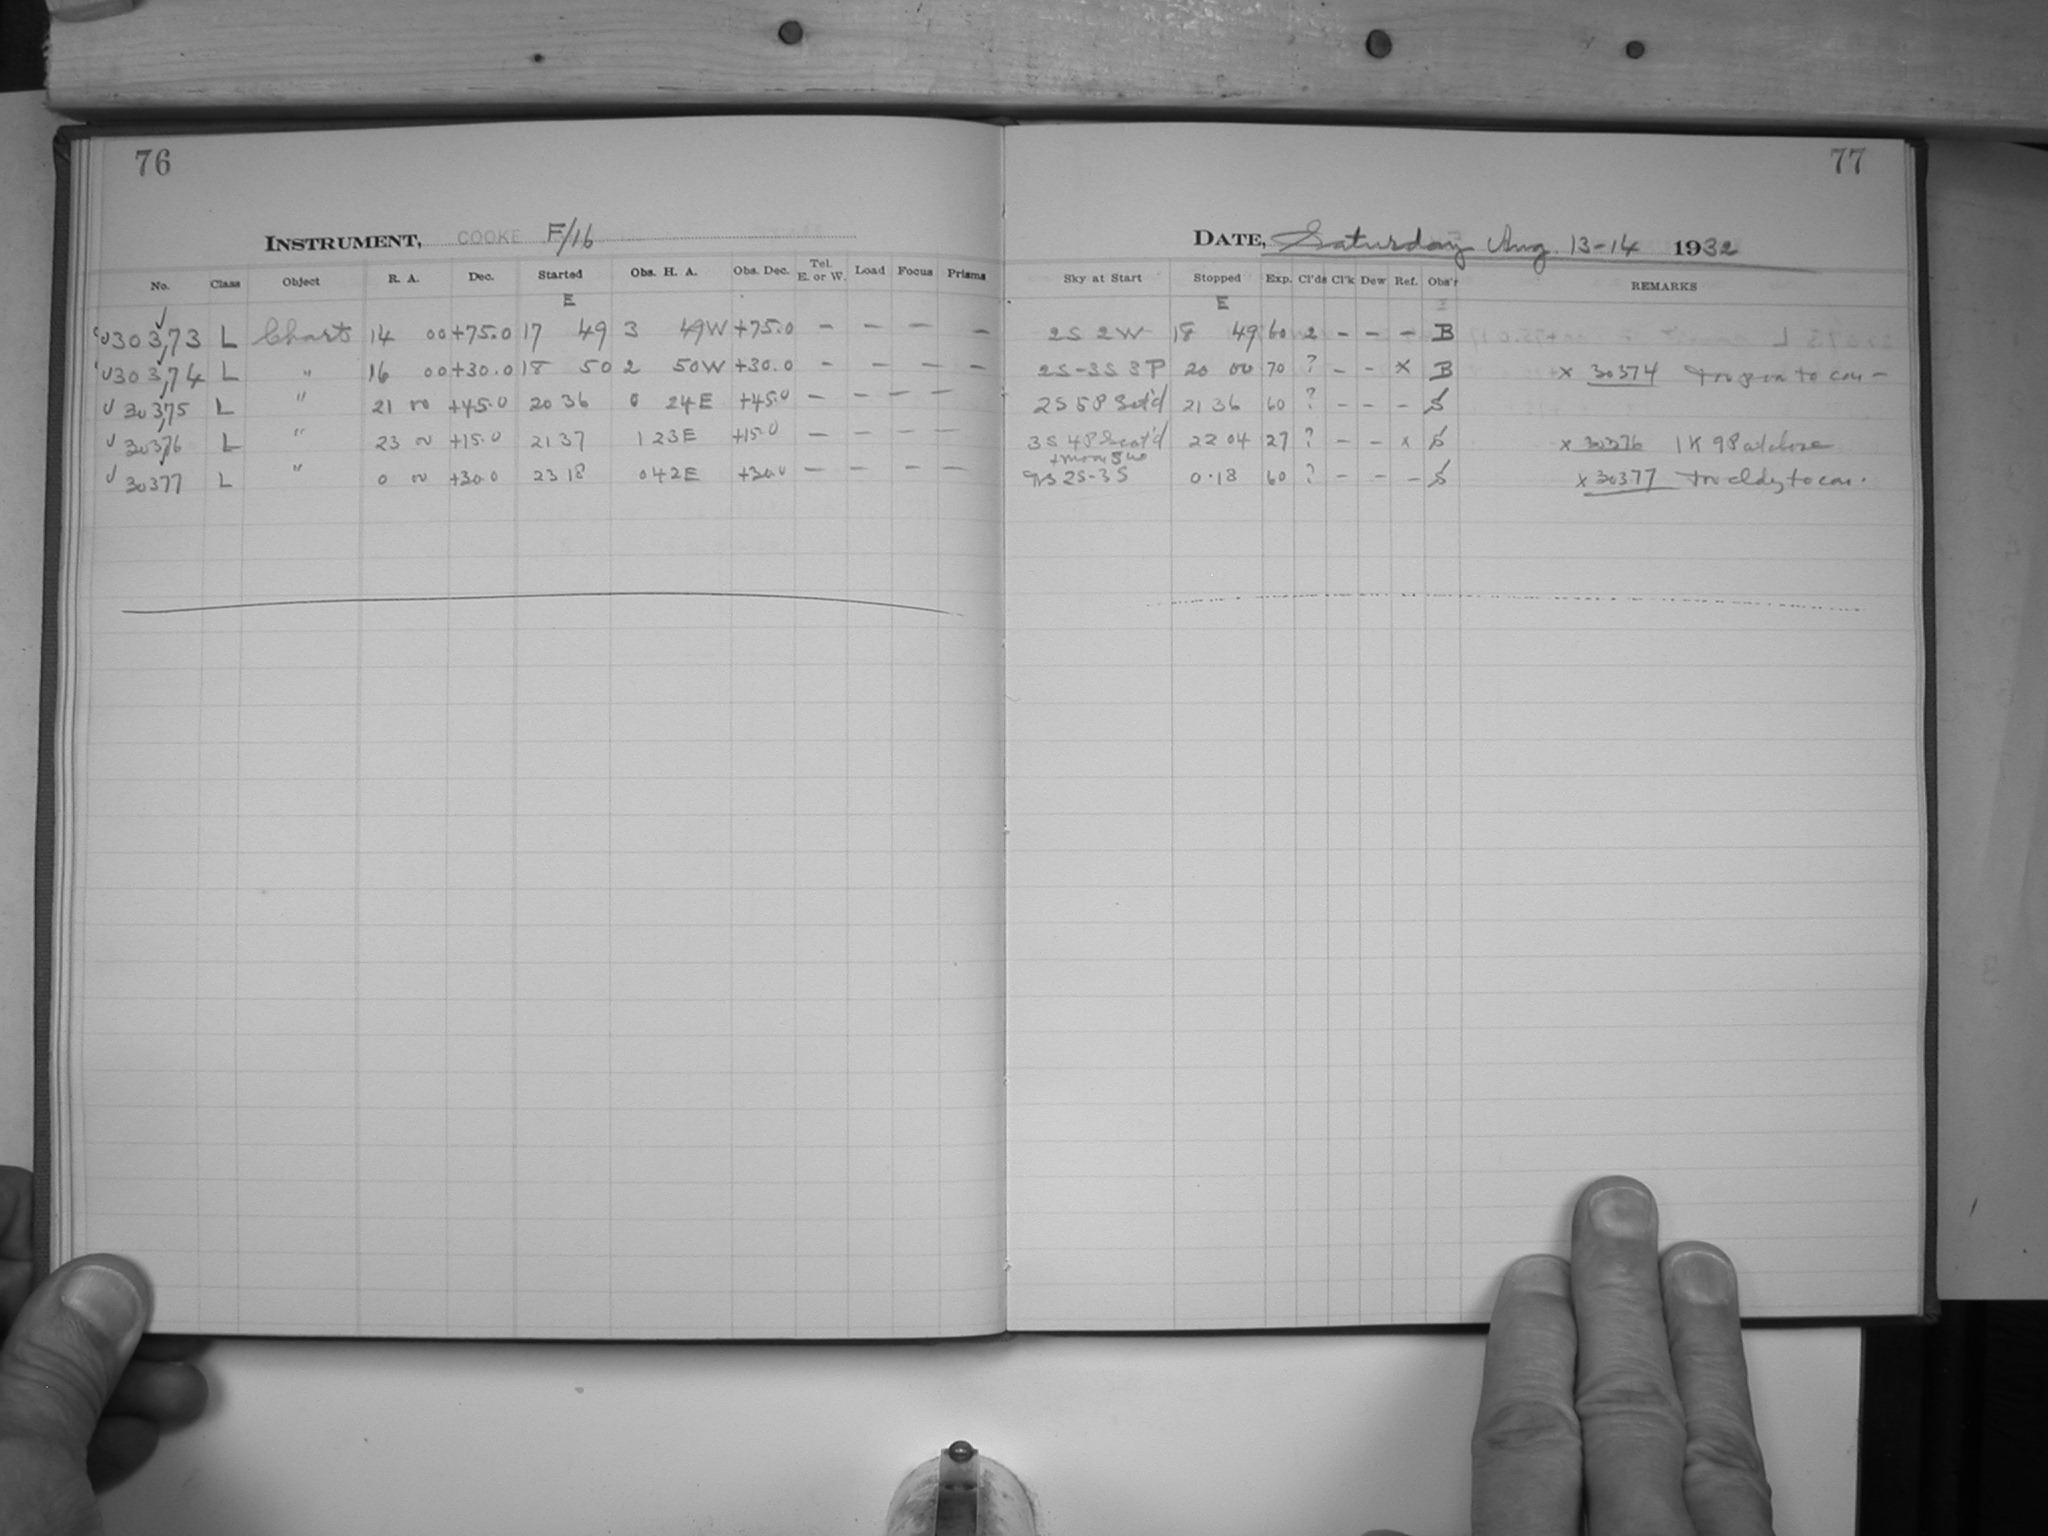 76
77
INSTRUMENT, COOKE F/16
DATE, Saturday Aug. 13-14 1932
No. Class Object R. A. Dec. Started Obs. H. A. Obs. Dec. Tel. E. or W. Load Focus Prisms Sky at Start Stopped Exp. Cl'ds Cl'k Dew Ref. Obs'r REMARKS
E E
30373 L Chart 14 00 +75.0 17 49 3 49W +75.0 - - - - 2S 2W 18 49 60 2 - - - B
30374 L " 16 00 +30.0 18 50 2 50W +30.0 - - - - 2S-3S 3P 20 00 70 ? - - x B x 30374 to
30375 L " 21 00 +45.0 20 36 0 24E +45.0 - - - - 2S 5P Scat'd 21 36 60 ? - - - S
30376 L " 23 00 +15.0 21 37 1 23E +15.0 - - - - 3S 4P Scat'd 22 04 27 ? - - x S x 30376 1K 9P at close
+ moon
30377 L " 0 00 +30.0 23 18 0 42E +30.0 - - - 2S-3S 0.18 60 ? - - - S x 30377 cldy to